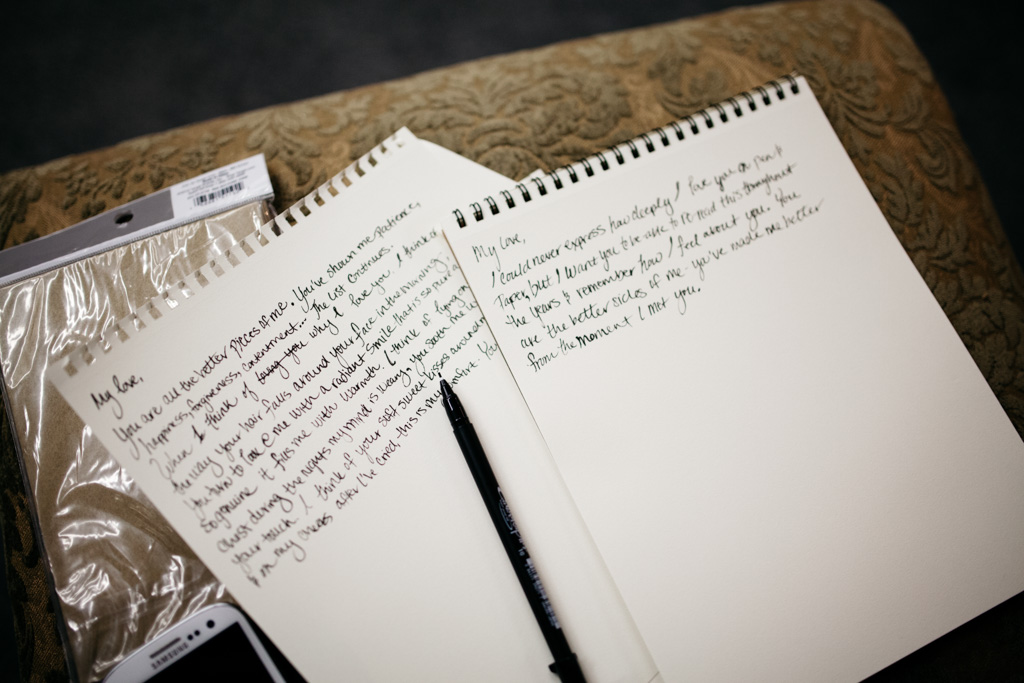 My love,
You are all the better pieces of me. You've shown me patience,
happiness, forgiveness, contentment... The list continues.
When I think of why I love you. I think of
the way your hair falls around your face in the morning
you turn to face me with a radiant smile that's so
so genuine it fills me with warmth. I think of lying
chest during the nights my mind is weary. you sooth me
your touch I think of your soft sweet kisses around
on my cheeks after I've cried, this is my
My love,
I could never express how deeply I love you on
Paper, but I want you to be able to re-read this throughout
the years & remember how I feel about you. You
are the better sides of me - you've made me better
from the moment I met you.
SAMSUNG